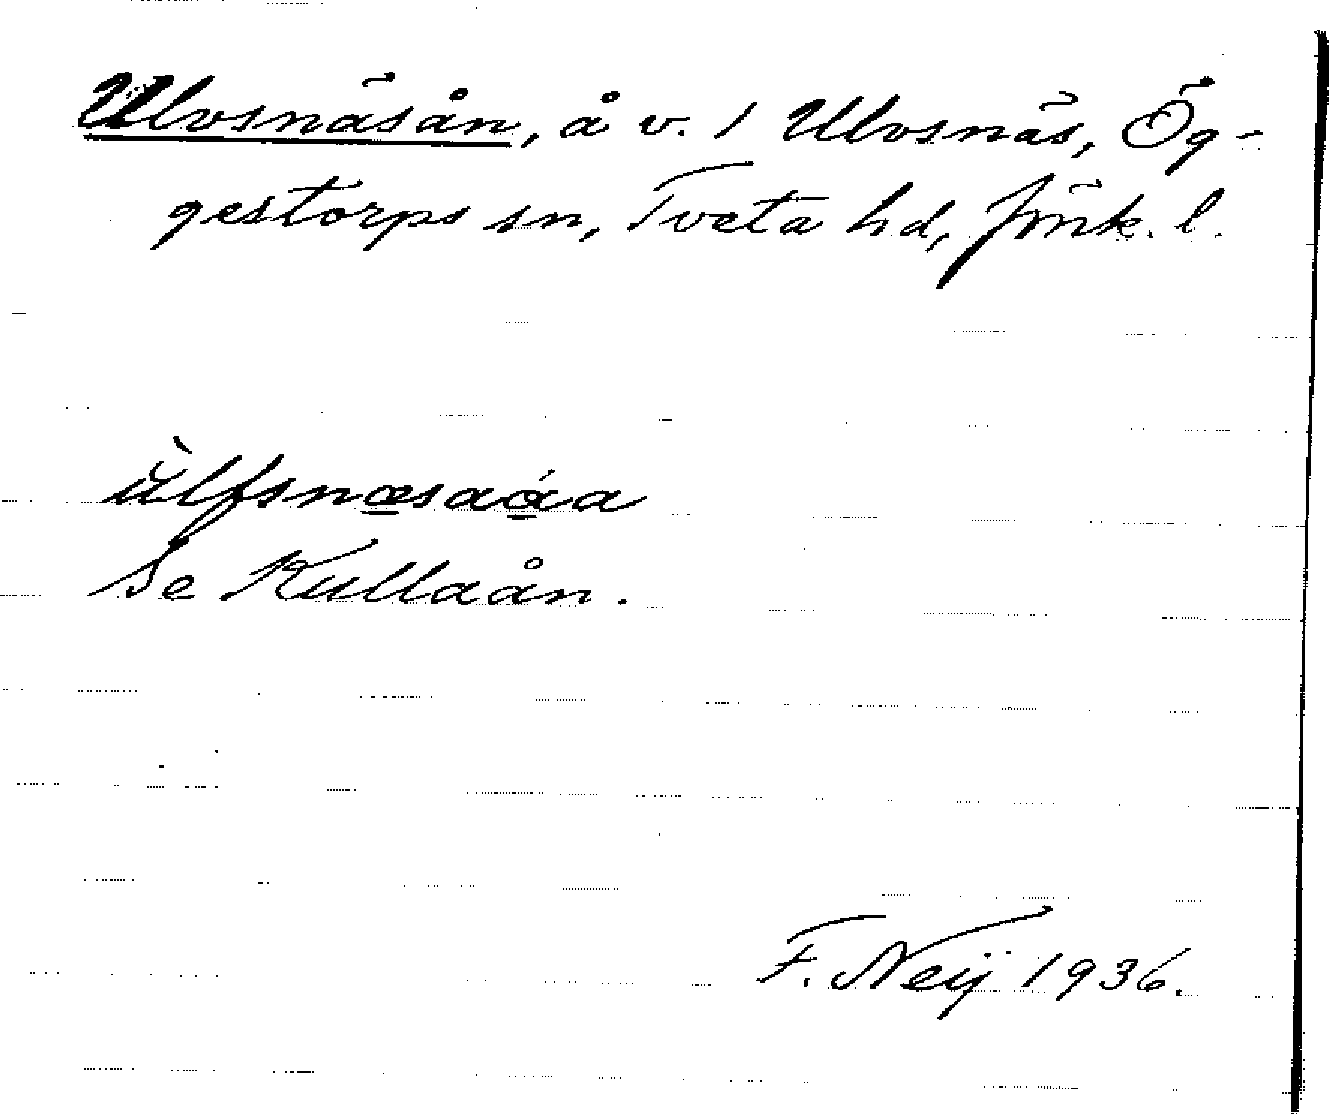 Ulvsnäsån, å v. 1 Ulvsnäs, Ög-
gestorps sn, Tveta hd, Jönk. l.
Se Kullaån.
F. Neij 1936.